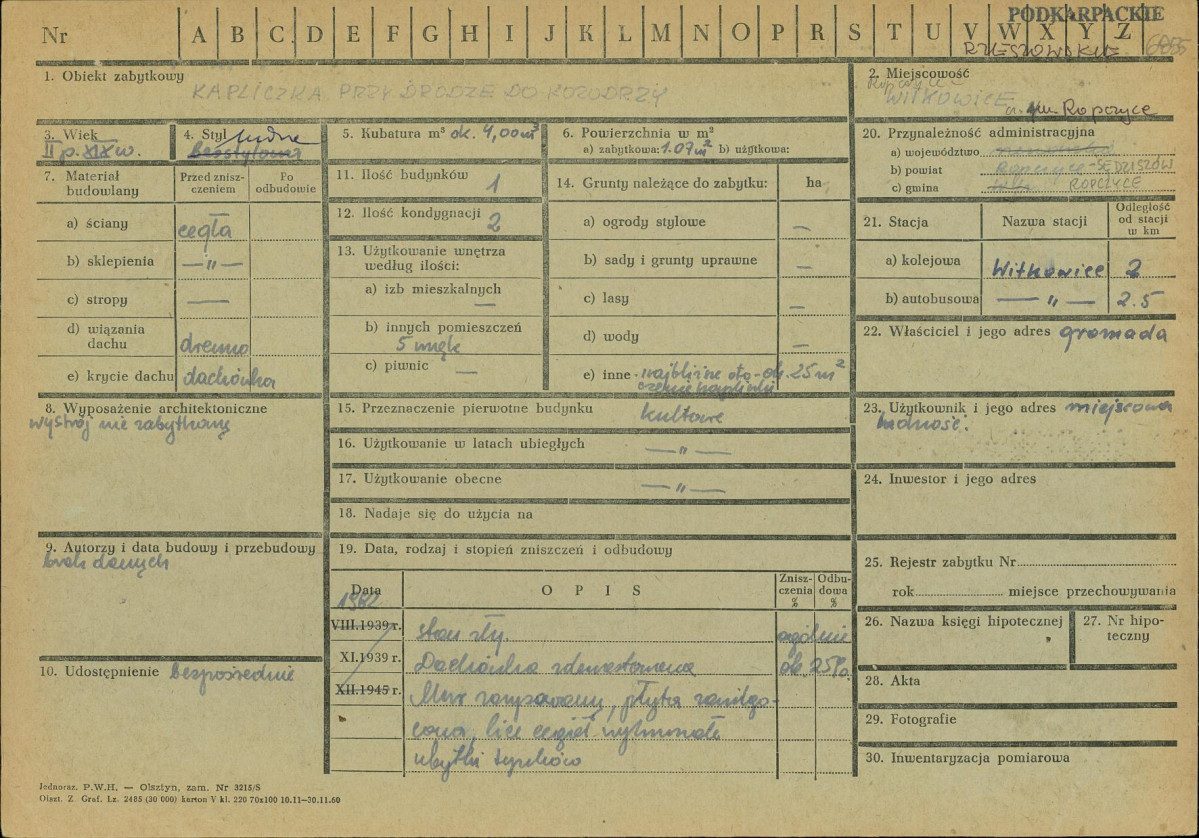 PODKARPACKIE
Nr A B C D E F G H I J K L M N O P R S T U V W X Y Z
RZESZOWSKIE
1. Obiekt zabytkowy
KAPLICZKA PRZY DRODZE DO KOZODRZY
2. Miejscowość
Ropczyce
WITKOWICE
gm. Ropczyce
3. Wiek
II p. XIX w.
4. Styl ludowe
bezstylowa
5. Kubatura m³ ok. 4,00 m³
6. Powierzchnia w m²
a) zabytkowa: 1.07 m² b) użytkowa:
7. Materiał budowlany
Przed zniszczeniem
Po odbudowie
a) ściany cegła
b) sklepienia — " —
c) stropy —
d) wiązania dachu drewno
e) krycie dachu dachówka
8. Wyposażenie architektoniczne
wystrój nie zabytkowy
9. Autorzy i data budowy i przebudowy
brak danych
10. Udostępnienie bezpośrednie
11. Ilość budynków 1
12. Ilość kondygnacji 2
13. Użytkowanie wnętrza
według ilości:
a) izb mieszkalnych
—
b) innych pomieszczeń
5 wnęk
c) piwnic —
14. Grunty należące do zabytku: ha
a) ogrody stylowe —
b) sady i grunty uprawne —
c) lasy —
d) wody —
e) inne najbliższe oto- ok. 25 m²
czenie kapliczki
15. Przeznaczenie pierwotne budynku kultowe
16. Użytkowanie w latach ubiegłych — " —
17. Użytkowanie obecne — " —
18. Nadaje się do użycia na
19. Data, rodzaj i stopień zniszczeń i odbudowy
Data
OPIS
Zniszczenia %
Odbudowa %
1962
VIII.1939 r. stan zły. ogólnie
XI.1939 r. Dachówka zdewastowana ok. 25%.
XII.1945 r. Mur zarysowany, płyta zawilgo-
cona, lice cegieł wykruszałe
ubytki tynków
20. Przynależność administracyjna
a) województwo
b) powiat Ropczyce-SĘDZISZÓW
c) gmina ROPCZYCE
21. Stacja
Nazwa stacji
Odległość od stacji w km
a) kolejowa Witkowice 2
b) autobusowa — " — 2.5
22. Właściciel i jego adres gromada
23. Użytkownik i jego adres miejscowa
ludność.
24. Inwestor i jego adres
25. Rejestr zabytku Nr
rok miejsce przechowywania
26. Nazwa księgi hipotecznej
27. Nr hipo-
teczny
28. Akta
29. Fotografie
30. Inwentaryzacja pomiarowa
Jednoraz. P.W.H. — Olsztyn, zam. Nr 3215/S
Olszt. Z Graf. Lz. 2485 (30 000) karton V kl. 220 70x100 10.11—30.11.60